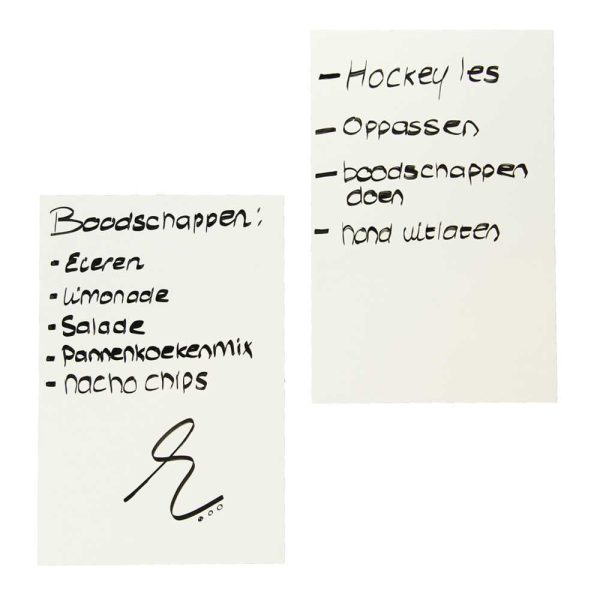 Boodschappen:
- Eieren
- Limonade
- Salade
- Pannenkoekenmix
- nacho chips
- Hockey les
- Oppassen
- boodschappen
doen
- hond uitlaten